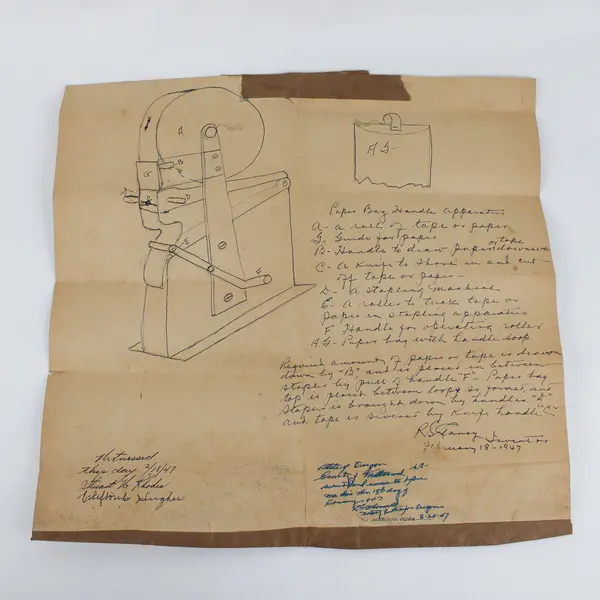 A
A G-
Paper Bag Handle Apparatus
A- A roll of tape or paper
G- Guide for paper
or tape
B- Handle to draw paper downward
C- A Knife to shove in and cut
off tape or paper-
D- A stapling machine
E- A roller to tuck tape or
paper in stapling apparatus
F Handle for operating roller
AG- Paper bag with handle loop
Required amount of paper or tape is drawn
down by "B" and is placed in between
stapler by pull of handle "F"- Paper bag
top is placed between loop so formed, and
stapler is brought down by handles "E"
and tape is severed by Knife handle "C"
Inventor
February 18-1947
Witnessed
this day 2/18/47
Stuart H. Rhodes
State of Oregon
County of
me this the 18th day of
8-20-47